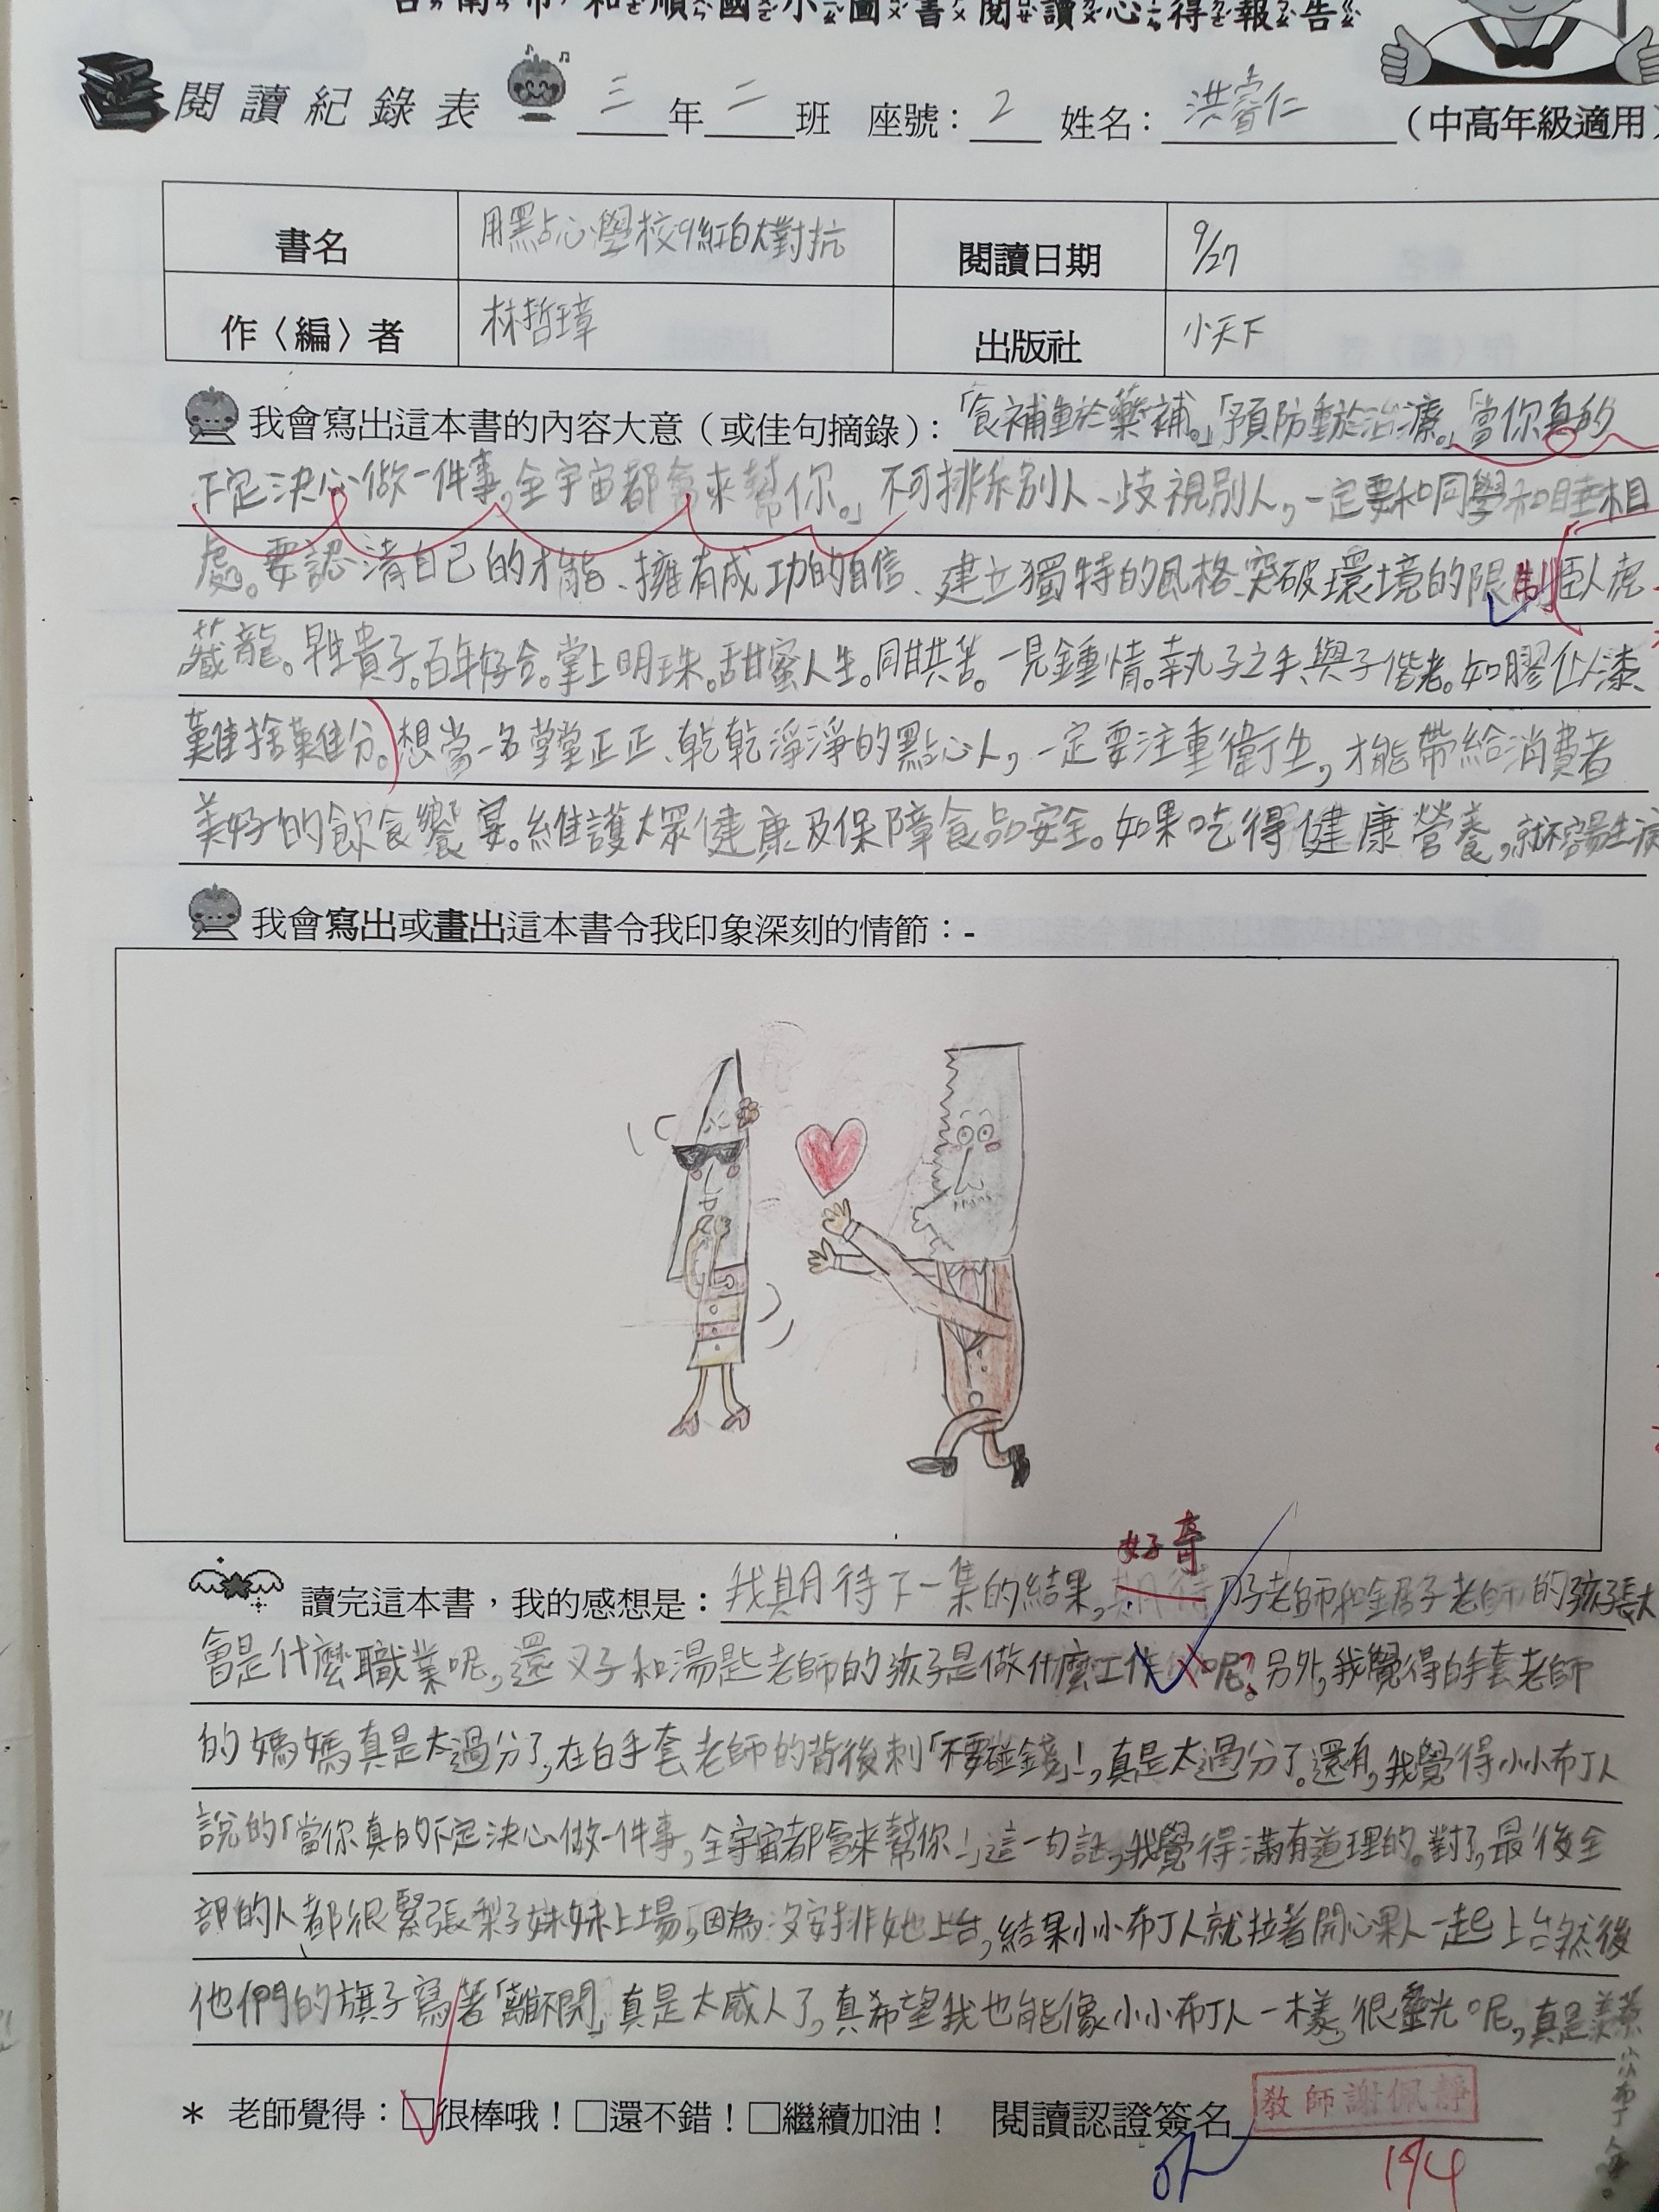 台南市和順國小圖書閱讀心得報告
閱讀紀錄表 三年二班 座號：2 姓名：洪睿仁 （中高年級適用）
書名 用點心學校9紅白大對抗 閱讀日期 9/27
作〈編〉者 林哲璋 出版社 小天下
我會寫出這本書的內容大意（或佳句摘錄）：「食補重於藥補。」「預防重於治療。」「當你真的
下定決心做一件事，全宇宙都會來幫你。」不可排斥別人、歧視別人，一定要和同學和睦相
處。要認清自己的才能、擁有成功的自信、建立獨特的風格、突破環境的限制臥虎
藏龍。早生貴子。百年好合。掌上明珠。甜蜜人生。同甘共苦。一見鍾情。執子之手、與子偕老。如膠似漆、
難捨難分。想當一名堂堂正正、乾乾淨淨的點心人，一定要注重衛生，才能帶給消費者
美好的飲食饗宴。維護大眾健康及保障食品安全。如果吃得健康營養，就不容易生病
我會寫出或畫出這本書令我印象深刻的情節：-
好奇
讀完這本書，我的感想是：我期待下一集的結果，期待刀子老師和鋸子老師的孩子長大
會是什麼職業呢，還叉子和湯匙老師的孩子是做什麼工作呢？另外，我覺得白手套老師
的媽媽真是太過分了，在白手套老師的背後刺「不要碰錢」！，真是太過分了。還有，我覺得小小布丁人
說的「當你真的下定決心做一件事，全宇宙都會來幫你！」這一句話，我覺得滿有道理的。對了，最後全
部的人都很緊張梨子妹妹上場，因為沒安排她上台，結果小小布丁人就拉著開心果人一起上台然後
他們的旗子寫著「離不開」真是太感人了，真希望我也能像小小布丁人一樣，很靈光呢，真是羨慕
小小布丁人
＊ 老師覺得：□很棒哦！□還不錯！□繼續加油！ 閱讀認證簽名
教師謝佩靜